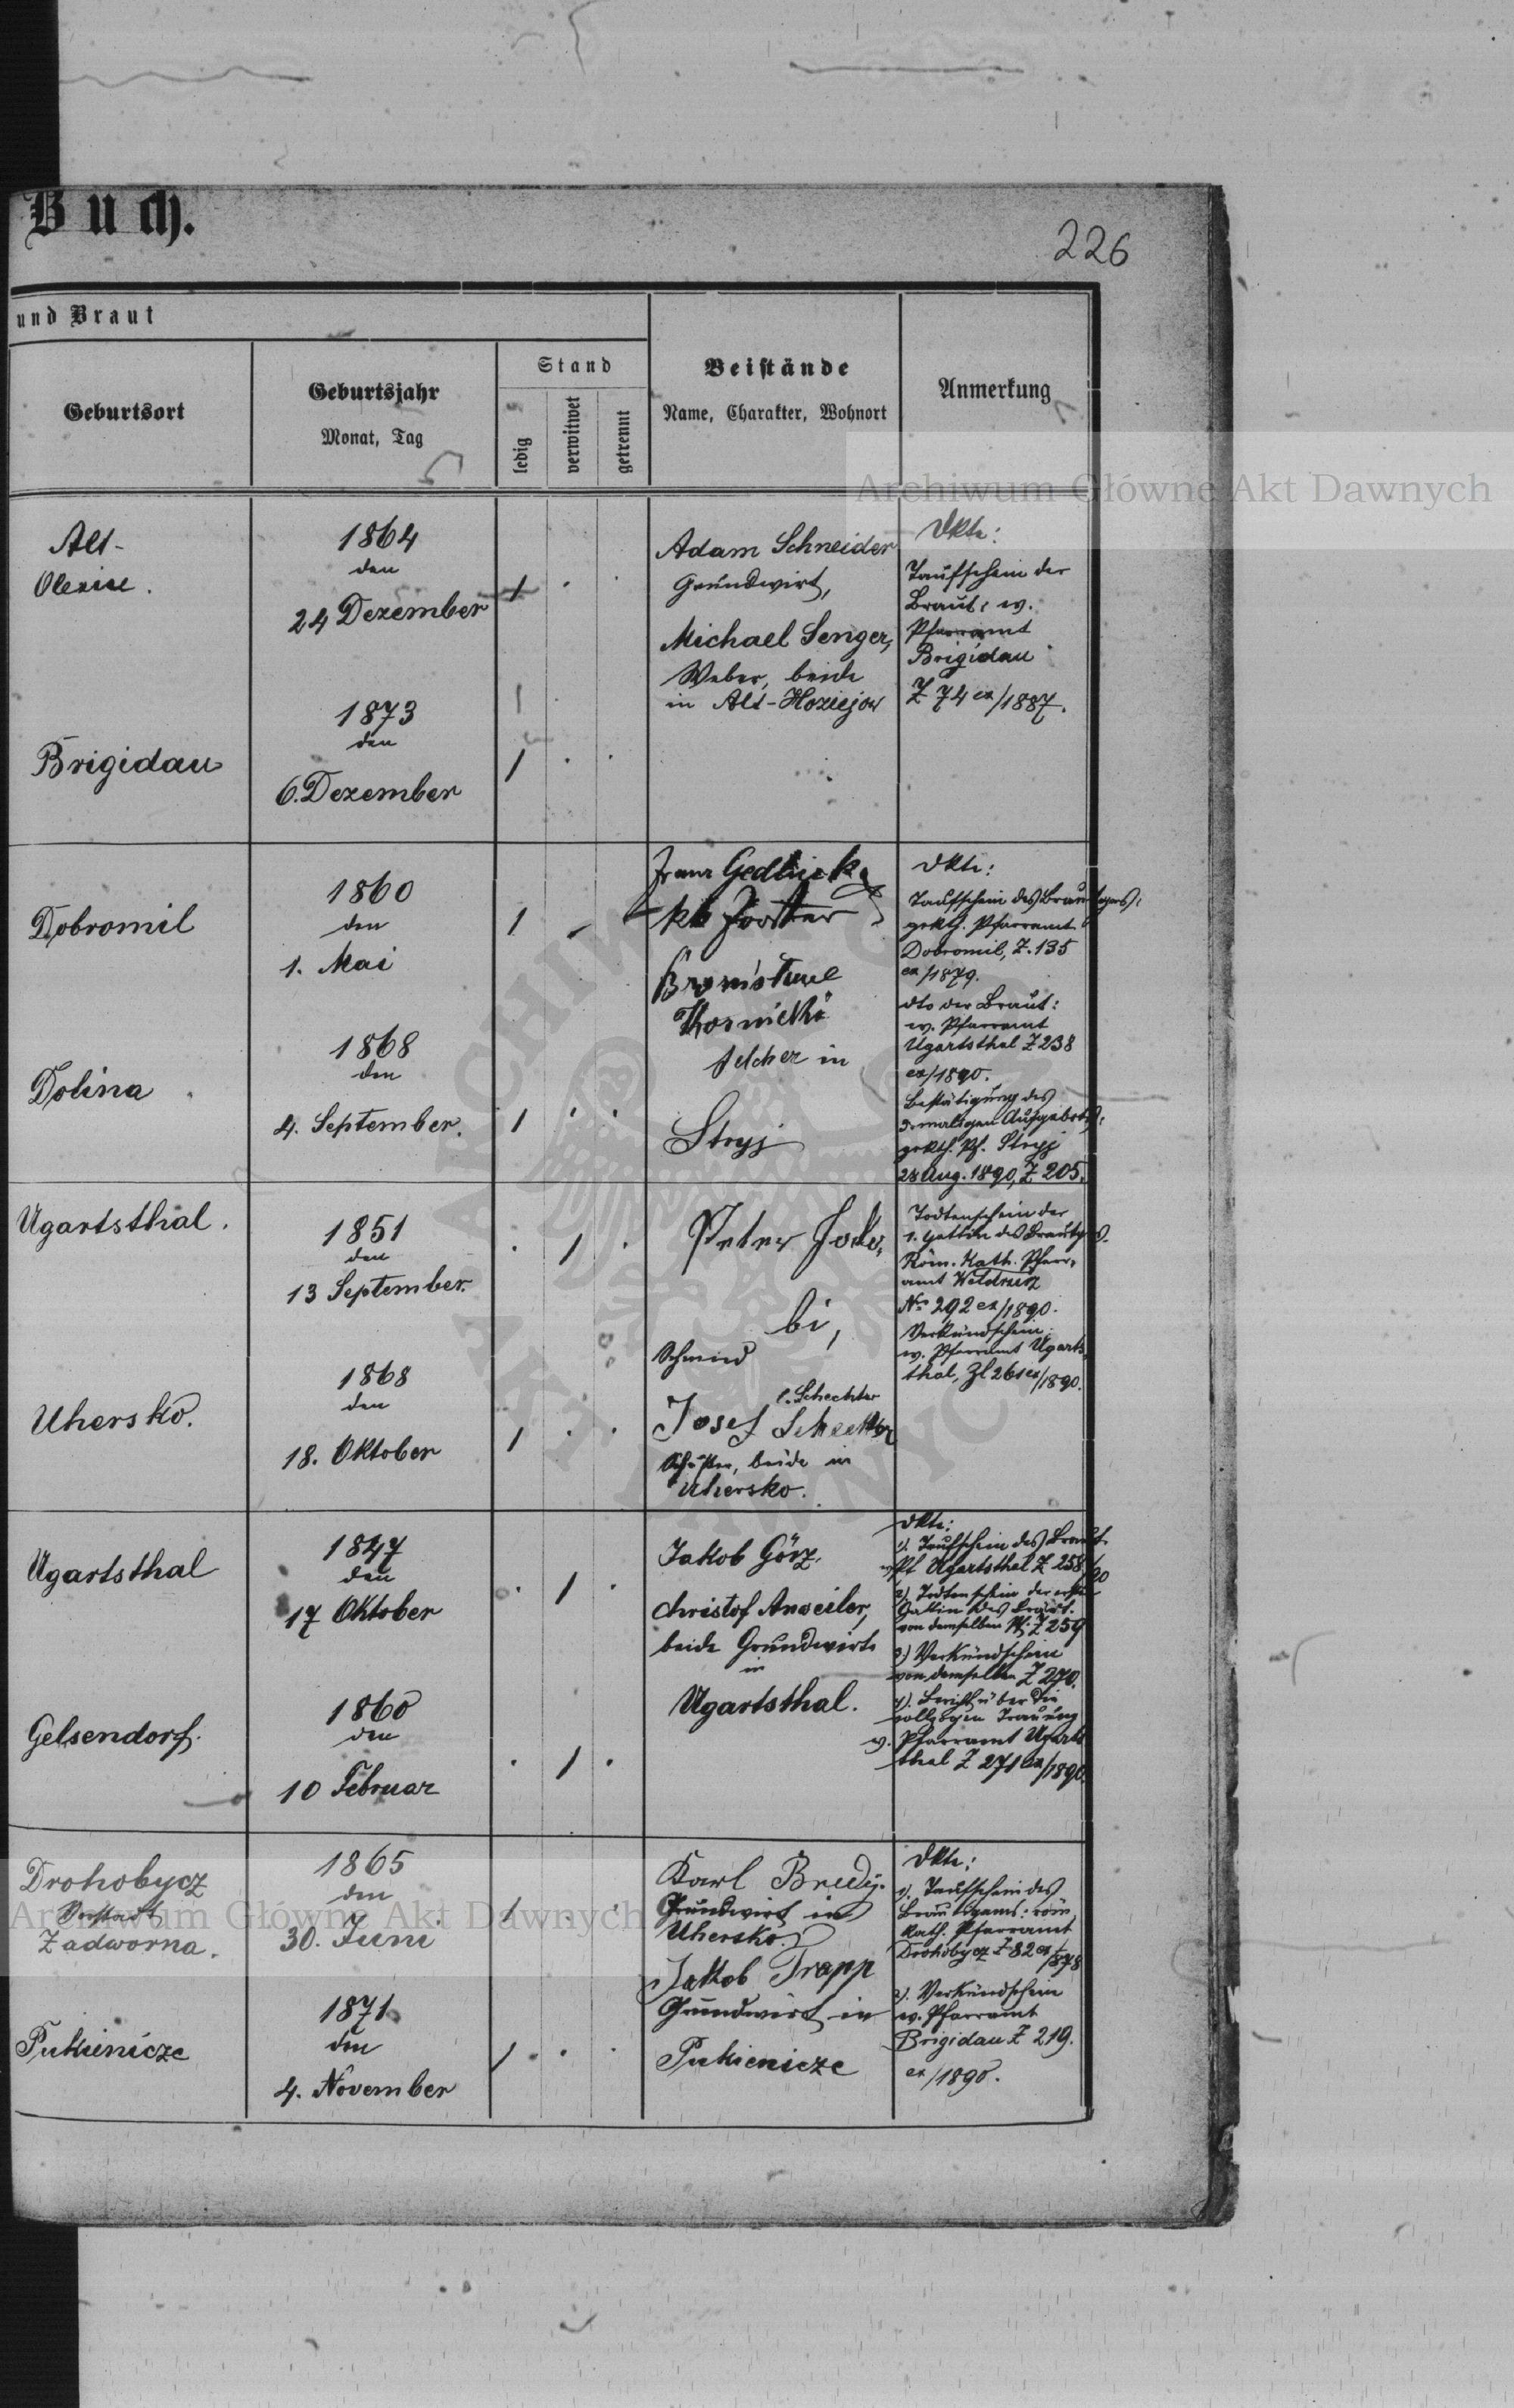 Buch.
226
und Braut
Geburtsort
Geburtsjahr
Monat, Tag
Stand
ledig
verwitwet
getrennt
Beistände
Name, Charakter, Wohnort
Anmerkung
Archiwum Główne Akt Dawnych
Alt-
Olexice.
1864
den
24 Dezember
1
Adam Schneider
Grundwirt,
Michael Senger,
Weber, beide
in Alt-
Dkte:
Taufschein der
Braut: ev.
Pfarramt
Brigidau
Z 74 ex/1887.
Brigidau
1873
den
6. Dezember
1
Dobromil
1860
den
1. Mai
1
Franz
kk
in
Stryj
Dkte:
Taufschein des Bräutigams:
grkth. Pfarramt
Dobromil, Z. 135
ex/1879.
dto der Braut:
ev. Pfarramt
Ugartsthal Z 238
ex/1890.
Bestätigung des
3-maligen Aufgebotes:
grkth. Pf. Stryj
28 Aug. 1890, Z 205.
Dolina
1868
den
4. September.
1
Ugartsthal.
1851
den
13 September.
1
Peter
bi,
Schmid
l. Schechter
Josef Schechter
beide in
Uhersko.
Todtenschein der
1. Gattin des Bräutgs.
Röm. Kath. Pfarr-
amt
No 292 ex/1890.
Verkündschein:
ev. Pfarramt Ugarts-
thal, Zl 261 ex/1890.
Uhersko.
1868
den
18. Oktober
1
Ugartsthal
1847
den
17 Oktober
1
Jakob Görz,
Christof Anweiler,
beide Grundwirte
in
Ugartsthal.
Dkte:
1). Taufschein des Bräut.
ev Pf Ugartsthal Z 258/90
2). Todtenschein der ersten
Gattin des Bräut.
von demselben Pf. Z 259
3) Verkündschein
von demselben Z 270.
4). Bericht über die
vollzogen Trauung
ev. Pfarramt Ugarts
thal Z 271 ex/1890.
Gelsendorf.
1860
den
10 Februar
1
Drohobycz
Vorstadt
Zadworna.
1865
den
30. Juni
1
Karl Bredy.
Grundwirt in
Uhersko.
Jakob Trapp
Grundwirt in
Pukienicze
Dkte:
1). Taufschein des
Bräutigams: röm.
kath. Pfarramt
Drohobycz Z 82 ex/878
2). Verkündschein
ev. Pfarramt
Brigidau Z 219.
ex/1890.
Pukienicze
1871
den
4. November
1
Archiwum Główne Akt Dawnych